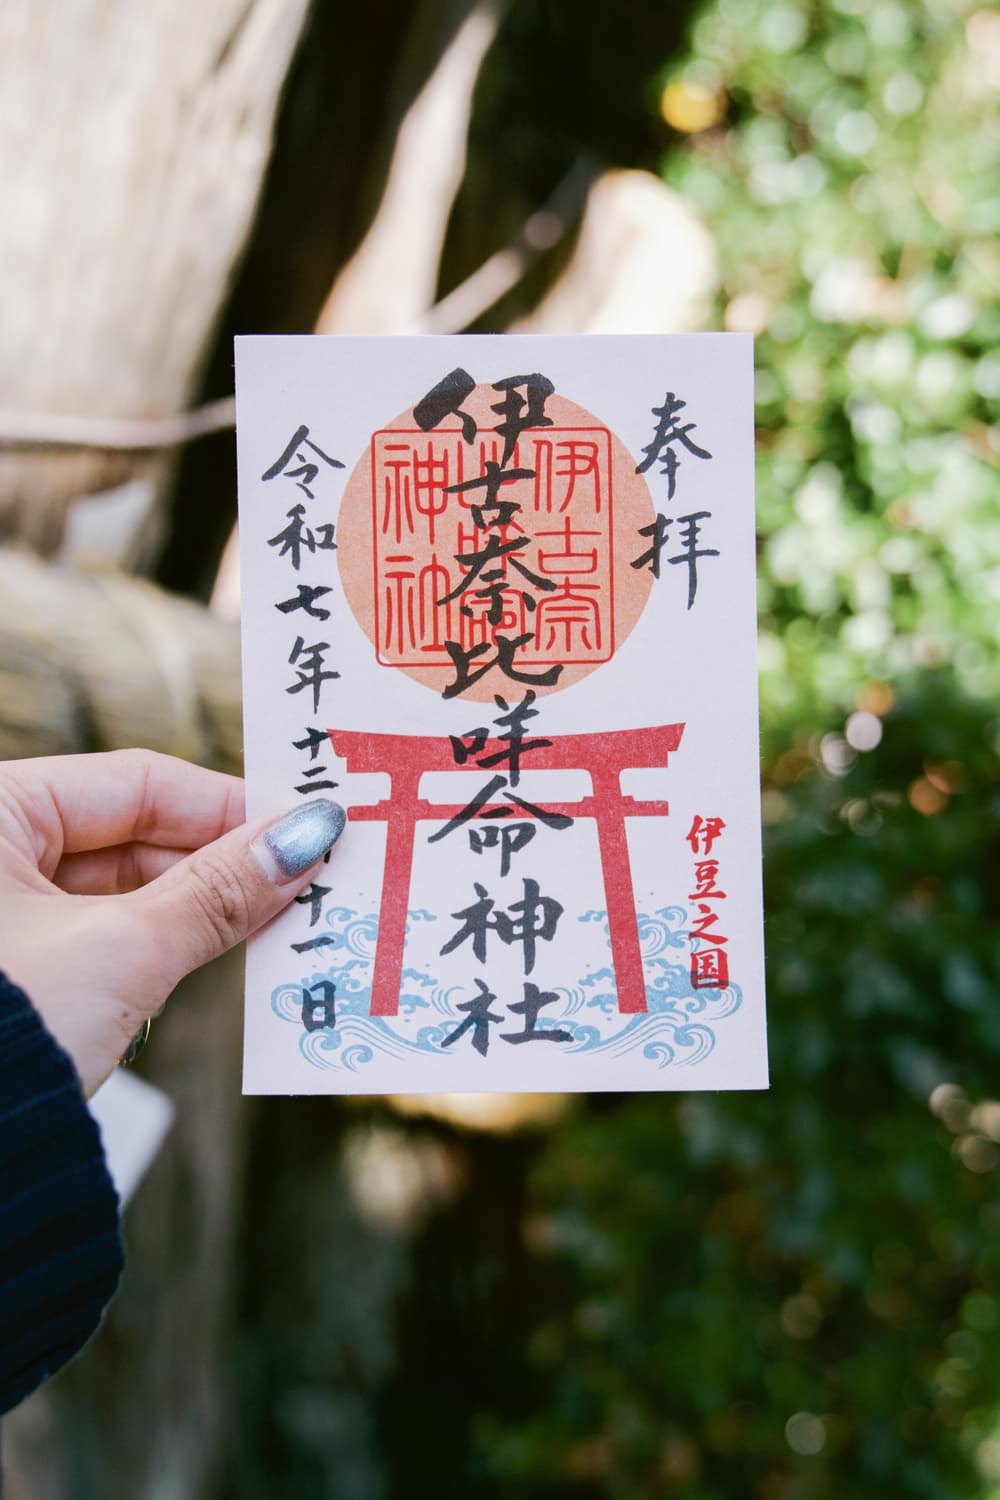 奉拝
伊豆之国
伊古奈比咩命神社
伊古奈
神社
令和七年十二
十一日